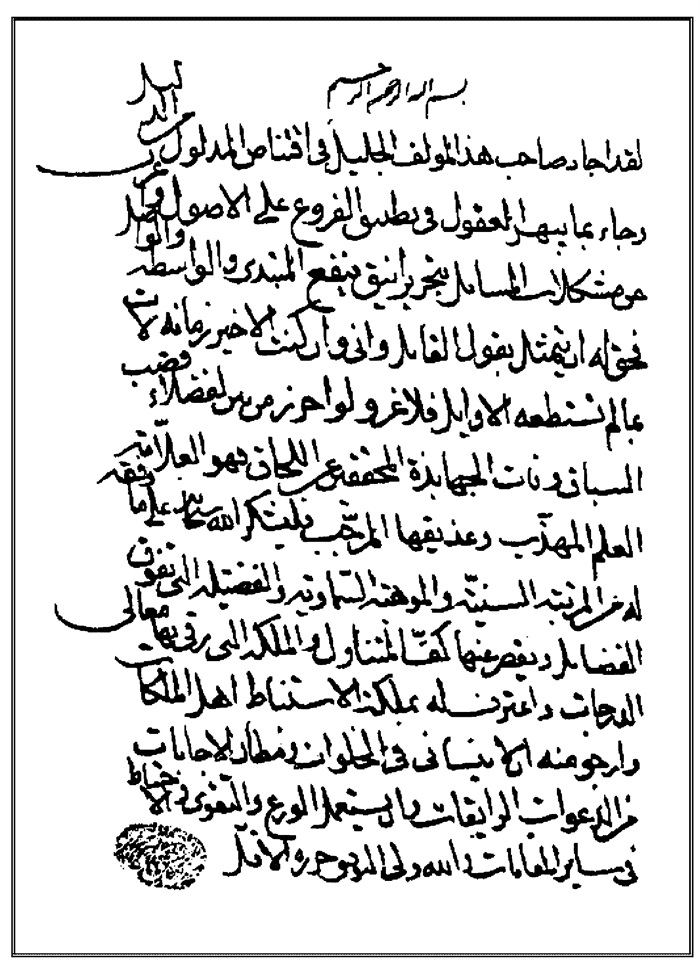 بسم الله الرحمن الرحيم
لقد اجاد صاحب هذا المولف الجليل في اقتناص المدلول من الدليل
وجاء بما يبهر العقول في تطبيق الفروع على الاصول وافصح
عن مشكلات المسائل بتحرير انيق ينفع المبتدي والواسطه والواصل
فحق له ان يتمثل بقول القائل واني وان كنت الاخير زمانه لات
بمالم تستطعه الاوايل فلا غرو لو احرز من بين الفضلاء قصب
السباق وفات الجهابذة المحققين عن اللحاق فهو العلامة
العلم المهذب وعذيقها المرجب فليشكر الله سبحانه على ما وفقه
له من المرتبة السنية والموهبة السماوية والفضيلة التي تفوق
الفضايل ويقصر عنها كف المتناول والملكة التي رقى بها معالي
الدرجات واعترف له بملكة الاستنباط اهل الملكات
وارجو منه ان لا ينساني في الخلوات ومظان الاجابات
من الدعوات الرايقات وان يستعمل الورع والتقوى والاحتياط
في ساير المقامات والله ولي التوفيق حرره الاقل